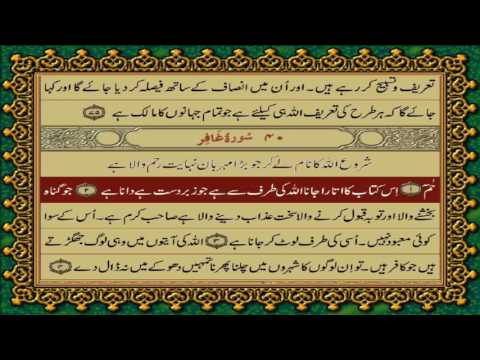 تعریف و تسبیح کر رہے ہیں۔ اور اُن میں انصاف کے ساتھ فیصلہ کر دیا جائے گا اور کہا
جائے گا کہ ہر طرح کی تعریف اللہ ہی کیلئے ہے جو تمام جہانوں کا مالک ہے ﴿۷۵﴾
۴۰ سُورَۃُ غَافِر
شروع اللہ کا نام لے کر جو بڑا مہربان نہایت رحم والا ہے
حٰمٓ ﴿۱﴾ اِس کتاب کا اتارا جانا اللہ کی طرف سے ہے جو زبردست ہے دانا ہے ﴿۲﴾ جو گناہ
بخشنے والا اور توبہ قبول کرنے والا ہے سخت عذاب دینے والا ہے صاحب کرم ہے۔ اُس کے سوا
کوئی معبود نہیں۔ اُسی کی طرف لوٹ کر جانا ہے ﴿۳﴾ اللہ کی آیتوں میں وہی لوگ جھگڑتے
ہیں جو کافر ہیں۔ تو اِن لوگوں کا شہروں میں چلنا پھرنا تمہیں دھوکے میں نہ ڈال دے ﴿۴﴾